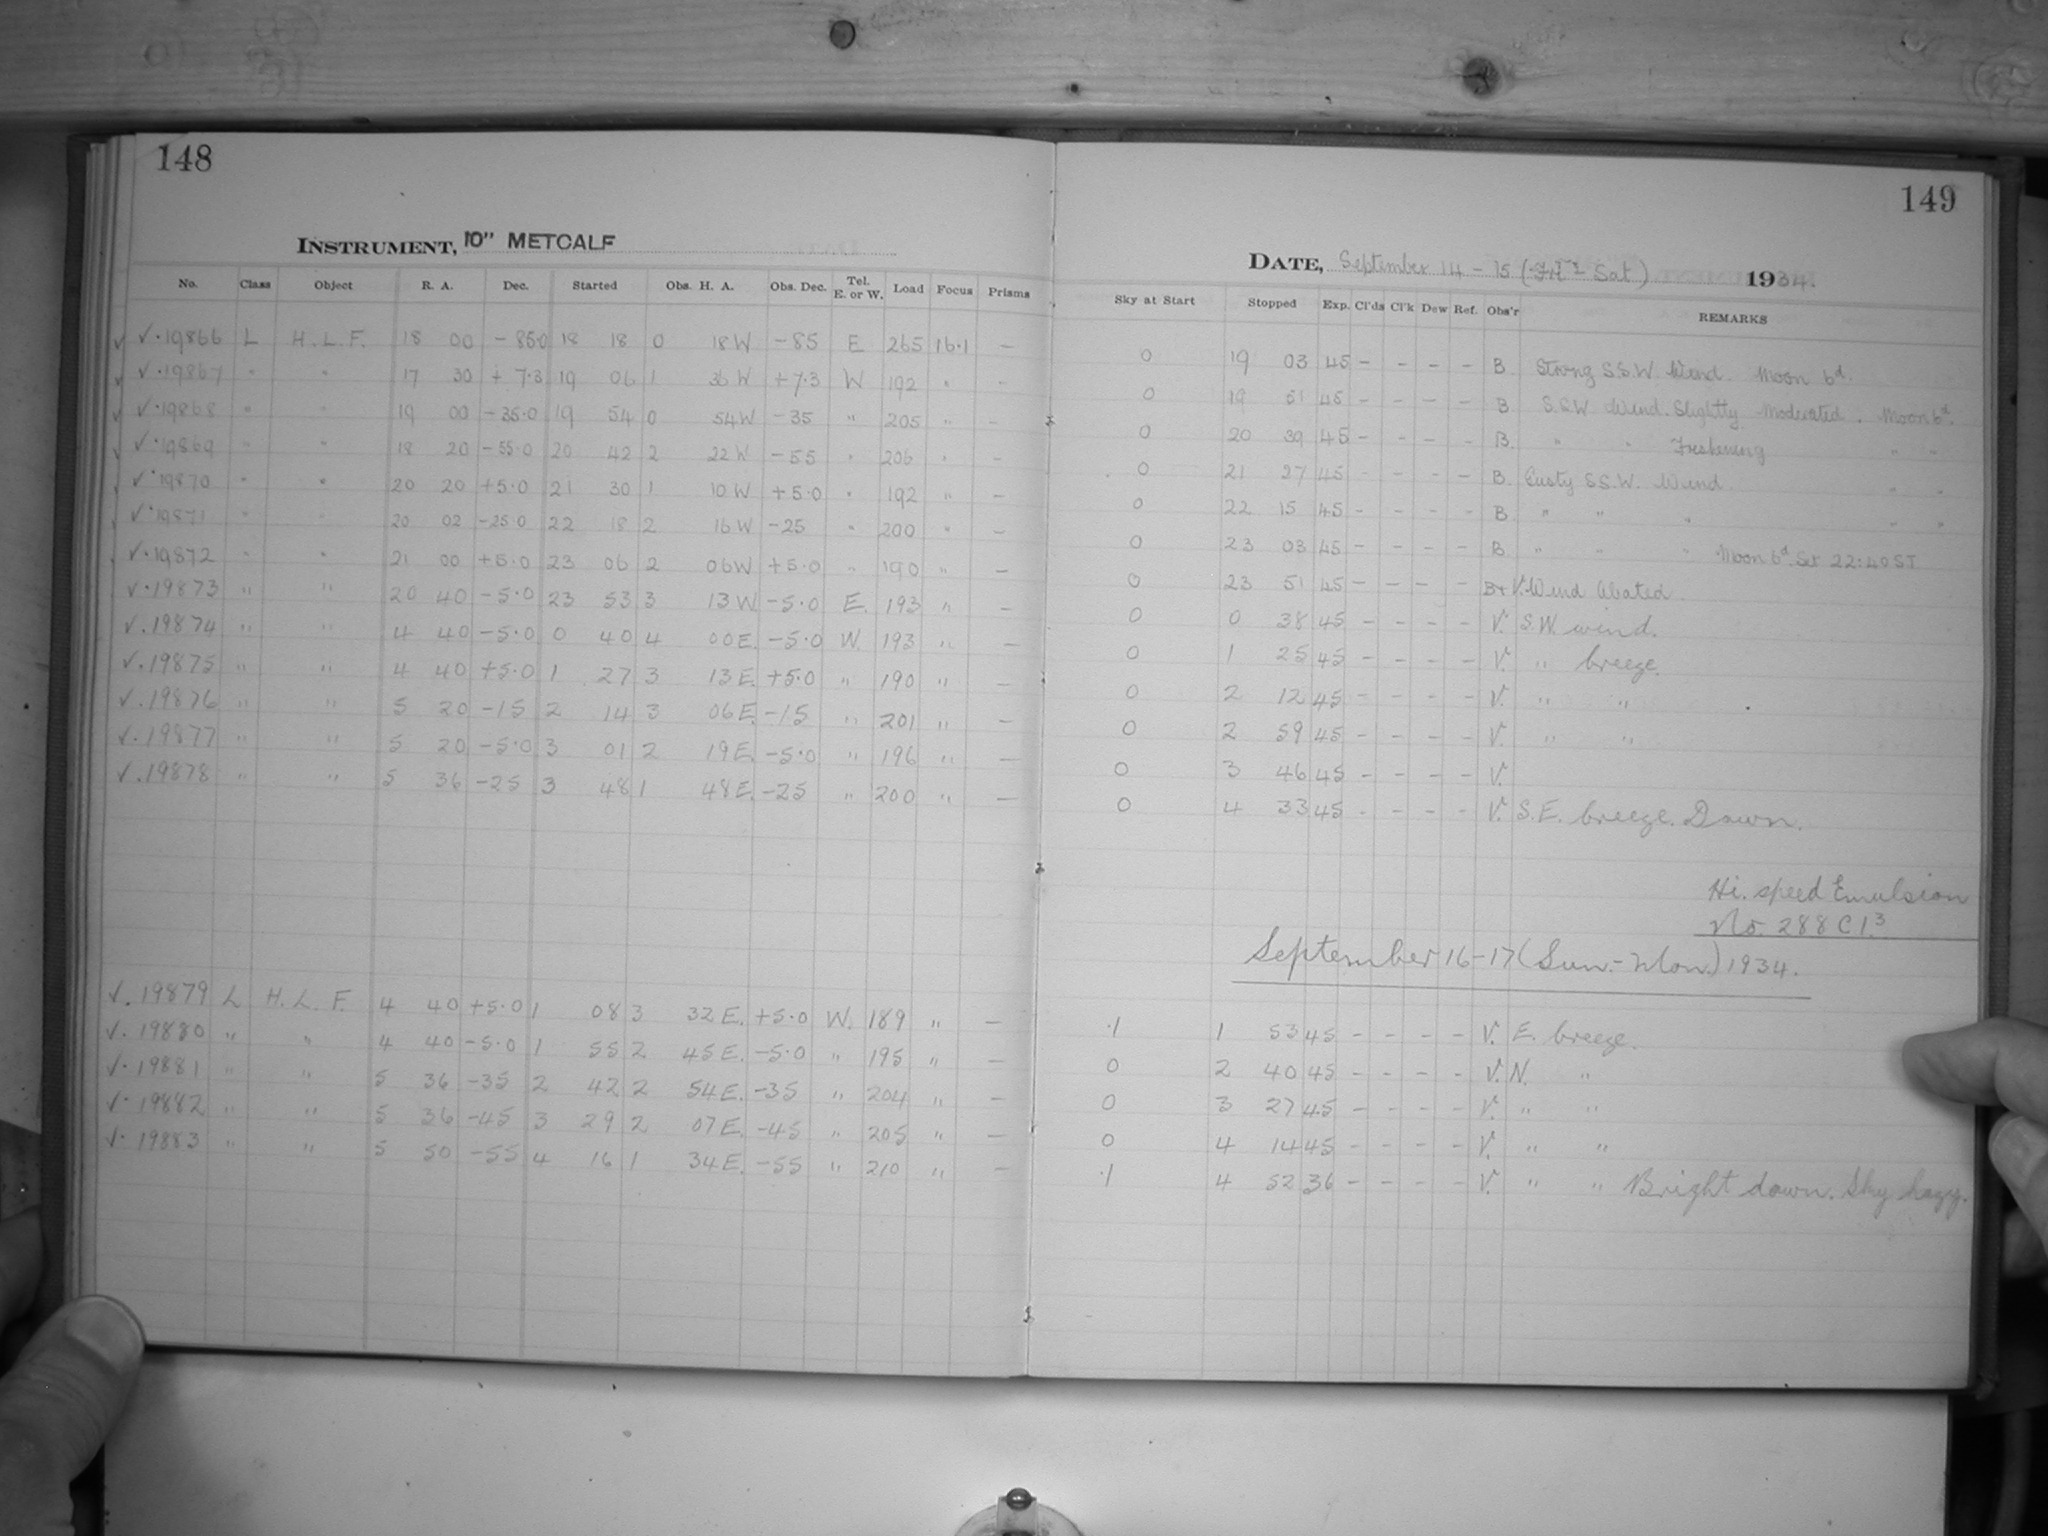 148
INSTRUMENT, 10" METCALF
No. Class Object R. A. Dec. Started Obs. H. A. Obs. Dec. Tel. E. or W. Load Focus Prisms
✓·19866 L H.L.F. 18 00 -85.0 18 18 0 18W -85 E 265 16.1 -
✓·19867 " " 17 30 +7.3 19 06 1 36W +7.3 W 192 " -
✓·19868 " " 19 00 -35.0 19 54 0 54W -35 " 205 " -
✓·19869 " " 18 20 -55.0 20 42 2 22W -55 " 206 " -
✓·19870 " " 20 20 +5.0 21 30 1 10W +5.0 " 192 " -
✓·19871 " " 20 02 -25.0 22 18 2 16W -25 " 200 " -
✓·19872 " " 21 00 +5.0 23 06 2 06W +5.0 " 190 " -
✓·19873 " " 20 40 -5.0 23 53 3 13W -5.0 E. 193 " -
✓.19874 " " 4 40 -5.0 0 40 4 00E. -5.0 W. 193 " -
✓.19875 " " 4 40 +5.0 1 27 3 13E. +5.0 " 190 " -
✓.19876 " " 5 20 -15 2 14 3 06E. -15 " 201 " -
✓.19877 " " 5 20 -5.0 3 01 2 19E. -5.0 " 196 " -
✓.19878 " " 5 36 -25 3 48 1 48E. -25 " 200 " -
✓.19879 L H.L.F. 4 40 +5.0 1 08 3 32E. +5.0 W. 189 " -
✓.19880 " " 4 40 -5.0 1 55 2 45E. -5.0 " 195 " -
✓.19881 " " 5 36 -35 2 42 2 54E. -35 " 204 " -
✓.19882 " " 5 36 -45 3 29 2 07E. -45 " 205 " -
✓.19883 " " 5 50 -55 4 16 1 34E. -55 " 210 " -
149
DATE, September 14-15 (Fri - Sat) 1934.
Sky at Start Stopped Exp. Cl'ds Cl'k Dew Ref. Obs'r REMARKS
0 19 03 45 - - - - B Strong S.S.W. Wind. Moon bd.
0 19 51 45 - - - - B S.S.W. Wind. Slightly Moderated. Moon bd.
0 20 39 45 - - - - B. " " Freshening " "
0 21 27 45 - - - - B. Gusty S.S.W. Wind " "
0 22 15 45 - - - - B. " " " " "
0 23 03 45 - - - - B " " " Moon bd. Set 22:40 ST
0 23 51 45 - - - - B+V. Wind Abated.
0 0 38 45 - - - - V. S.W. wind.
0 1 25 45 - - - - V. " breeze.
0 2 12 45 - - - - V. " "
0 2 59 45 - - - - V. " "
0 3 46 45 - - - - V.
0 4 33 45 - - - - V. S.E. breeze. Dawn.
Hi. speed Emulsion
No. 288 C1.3
September 16-17 (Sun.-Mon.) 1934.
.1 1 53 45 - - - - V. E. breeze.
0 2 40 45 - - - - V. N. "
0 3 27 45 - - - - V. " "
0 4 14 45 - - - - V. " "
.1 4 52 36 - - - - V. " " Bright dawn. Sky hazy.